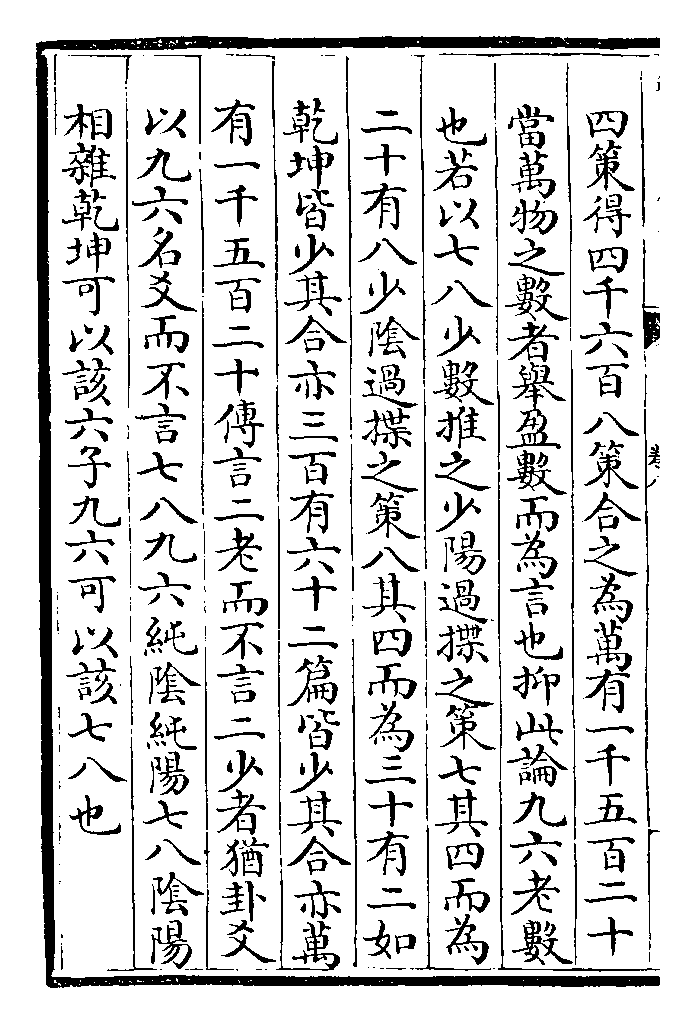 四策得四千六百八策合之為萬有一千五百二十
當萬物之數者舉盈數而為言也抑此論九六老數
也若以七八少數推之少陽過揲之策七其四而為
二十有八少陰過揲之策八其四而為三十有二如
乾坤皆少其合亦三百有六十二篇皆少其合亦萬
有一千五百二十傳言二老而不言二少者猶卦爻
以九六名爻而不言七八九六純陰純陽七八陰陽
相雜乾坤可以該六子九六可以該七八也